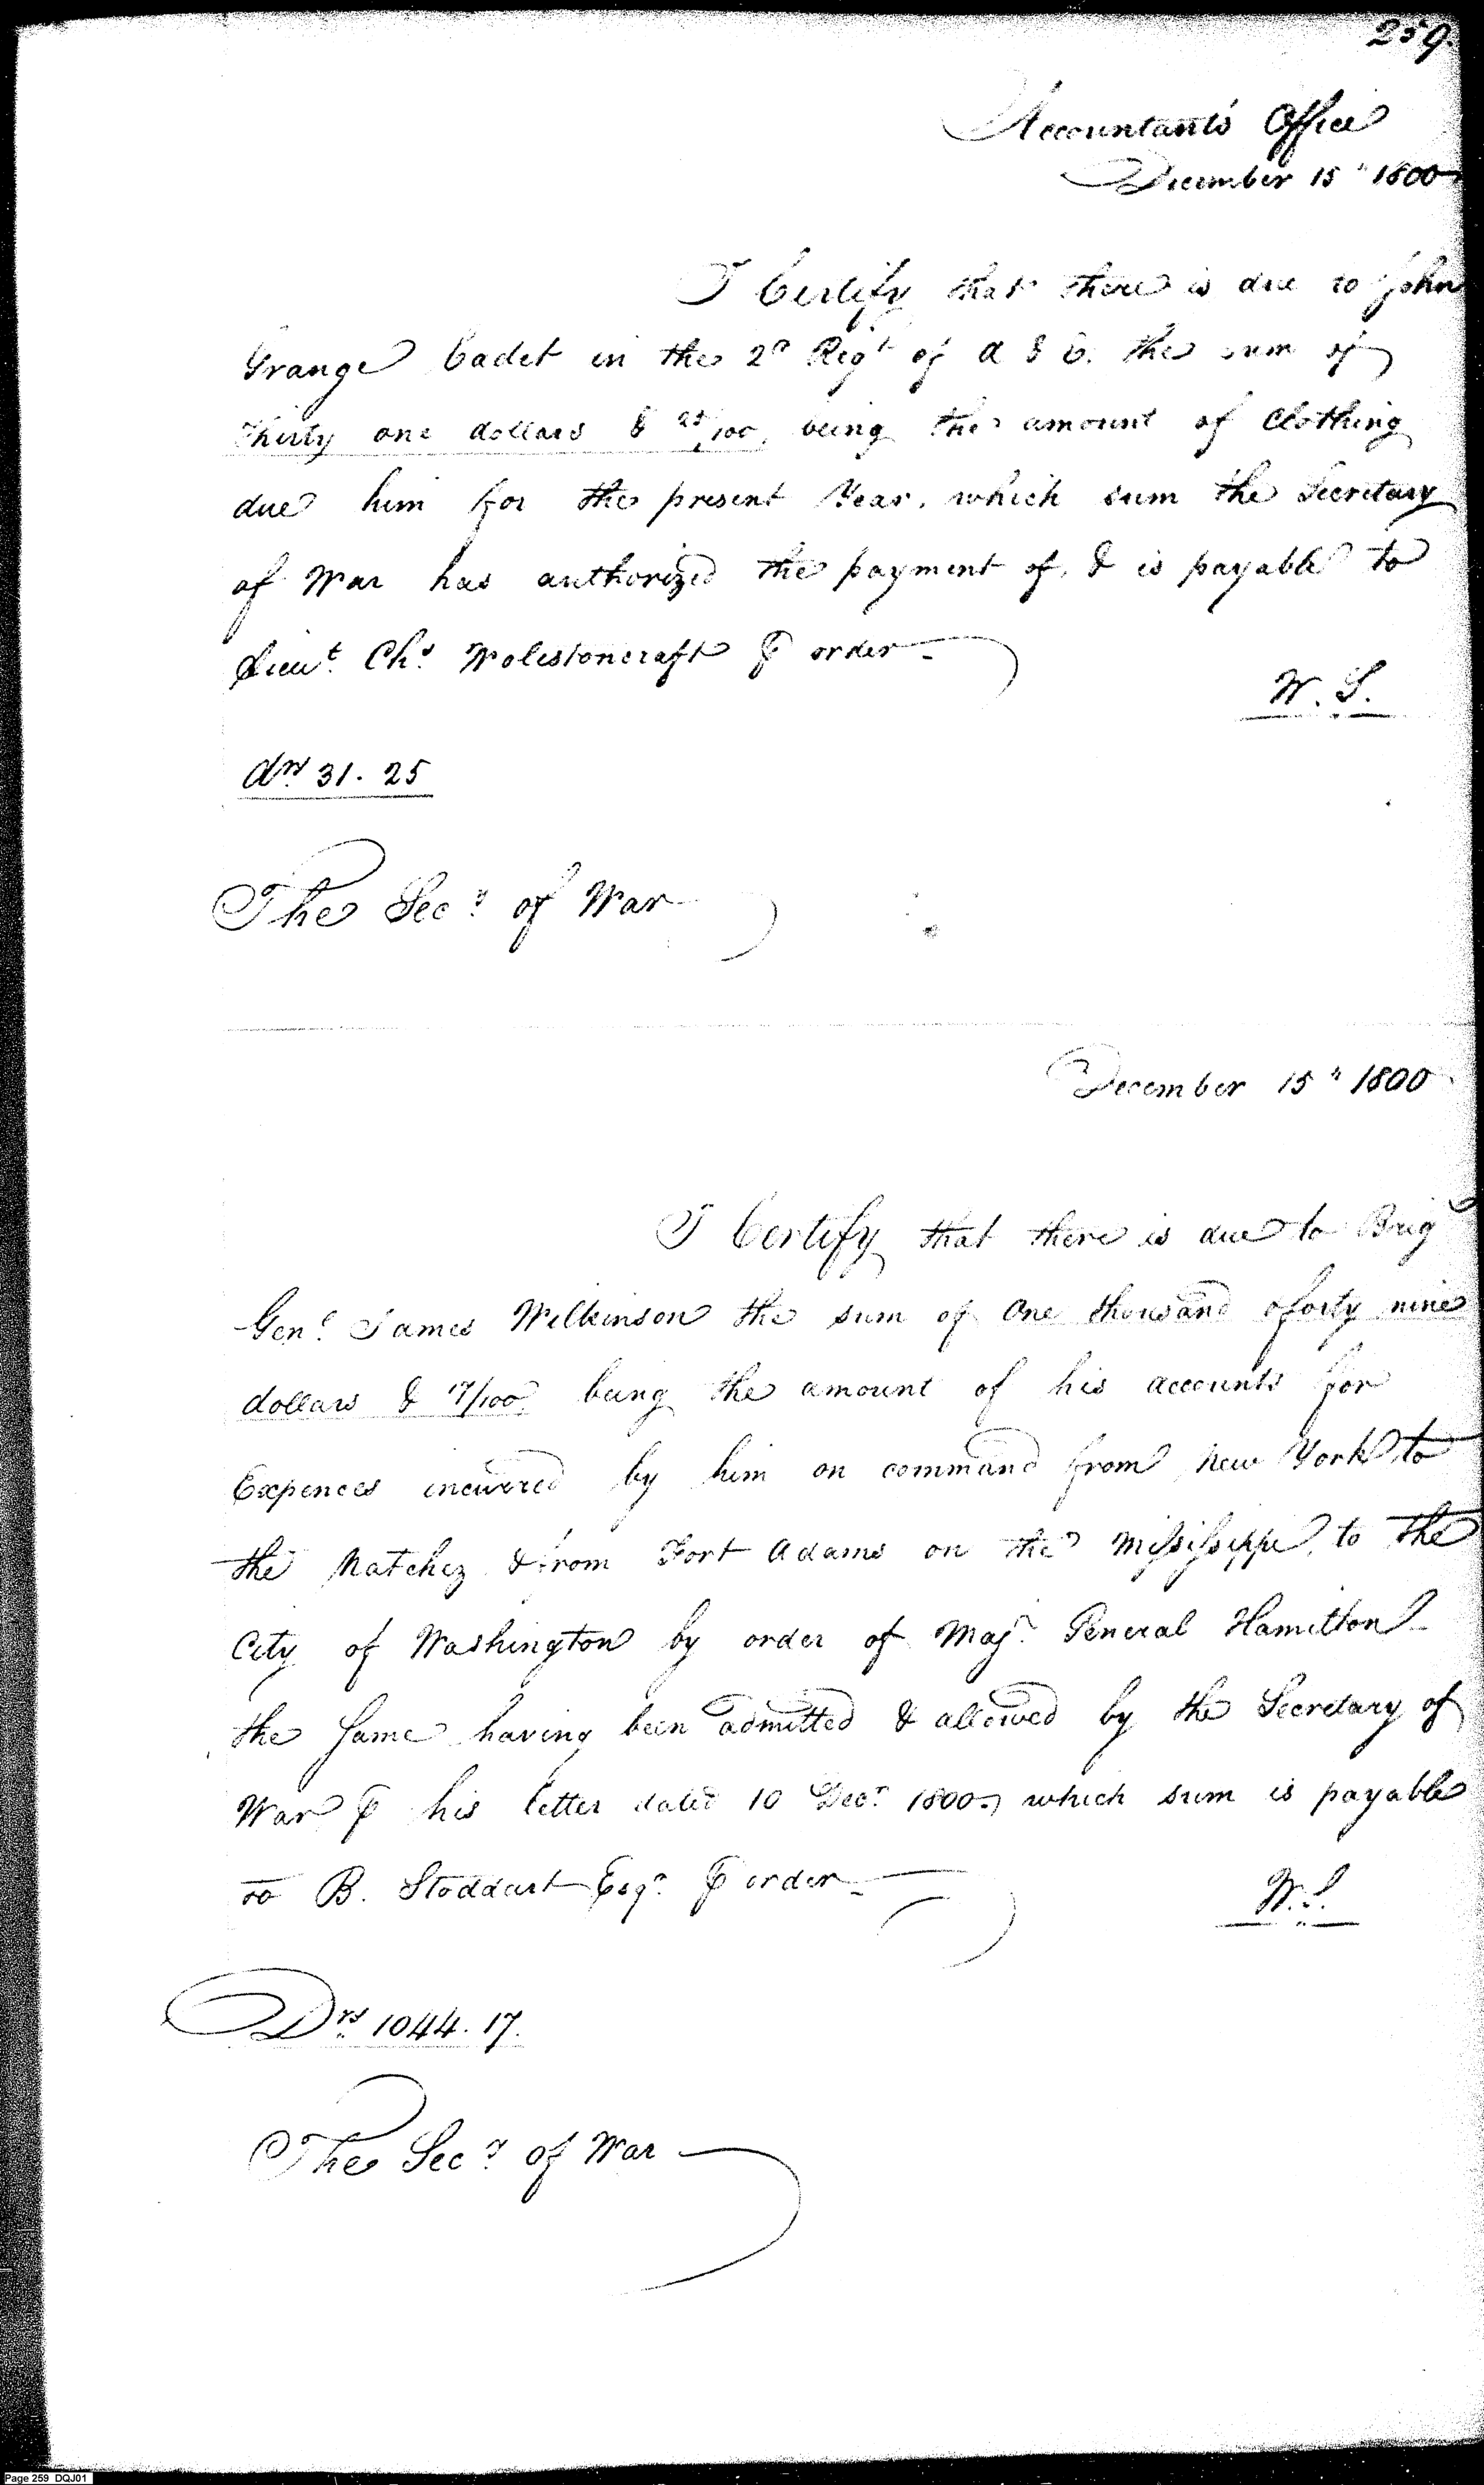 259.
Accountants Office
December 15th 1800
I Certify that there is due to John
Grange Cadet in the 2d Regt of A & E. the sum of
Thirty one dollars & 25/100, being the amount of Clothing
due him for the present Year, which sum the Secretary
of War has authorized the payment of, & is payable to
Lieut. Chs Wolestoncraft ⅌ order
W. S.
drs 31. 25
The Secy of War
December 15th 1800
I Certify that there is due to Brigr
Genl James Wilkinson the sum of One thousand & forty nine
dollars & 17/100 being the amount of his accounts for
Expences incurred by him on command from New York to
the Natchez & from Fort Adams on the Missisippi, to the
City of Washington by order of Majr General Hamilton
the same having been admitted & allowed by the Secretary of
War ⅌ his letter dated 10 Decr 1800, which sum is payable
to B. Stoddart Esqr ⅌ order
W. S.
Drs 1044. 17.
The Secy of War
Page 259 DQJ01